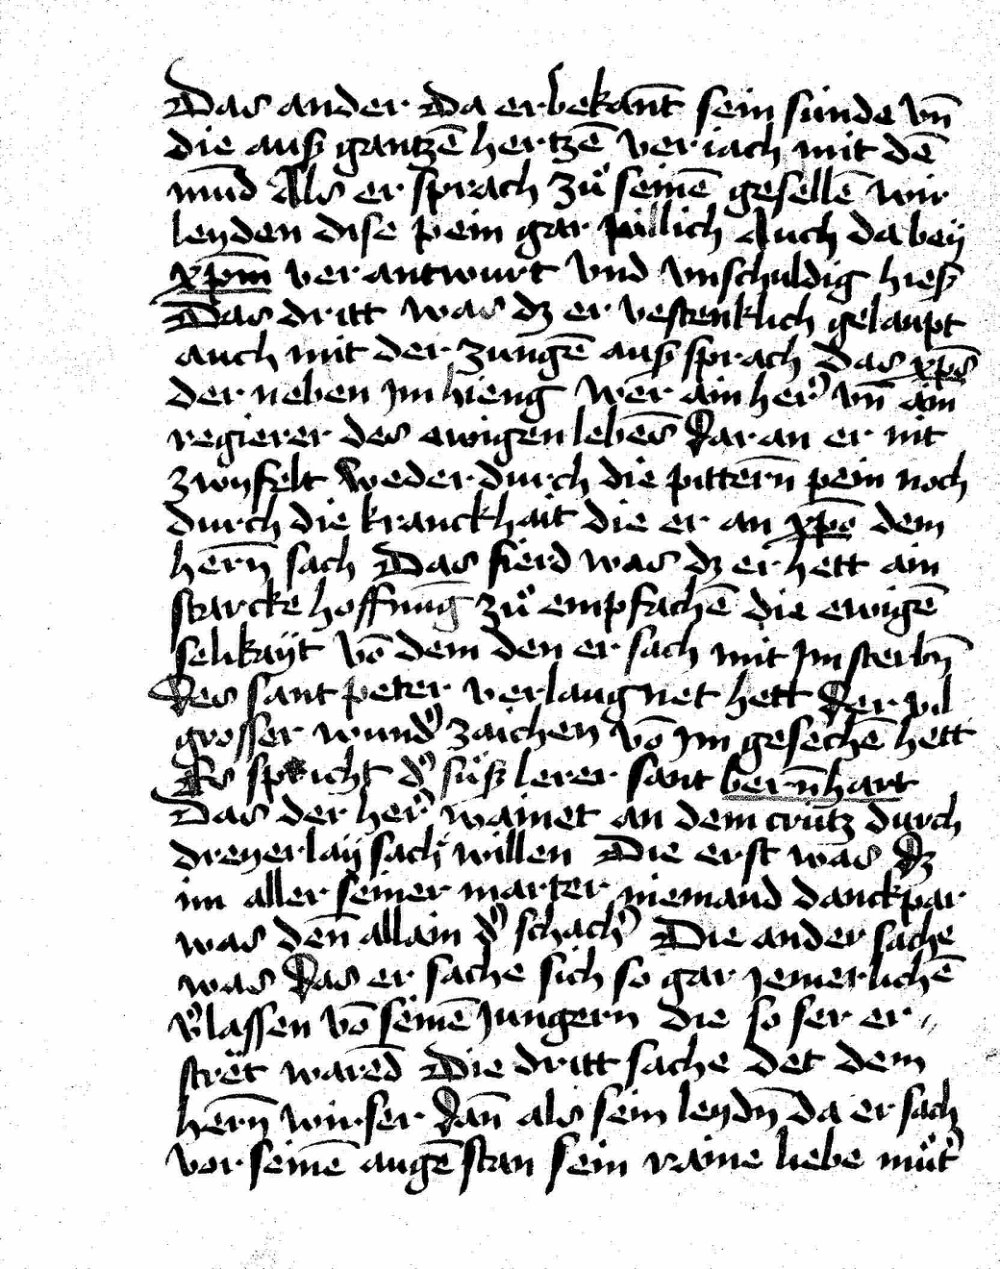 Das ander Da er bekant̄ sein sünde vn̄
die auß gantzē hertzē veriach mit dē
mūd Als er sprach zů seinē gesellē wir
leyden dise pein gar pillich Auch da bey
xp̄m verantwurt Vnd vnschuldig hieß
Das dritt was dz er vestenklich gelaupt
auch mit der zungē auß sprach das xp̄s
der neben jm hieng wer ain her᷑ vn̄ ain
regierer des ewigen lebēs Daran er nit
zwyfelt Weder durch die pittern̄ pein noch
durch die kranckhait die er an xp̄o dem
hern̄ sach Das fierd was dz er hett ain
starcke hoffnūg zů empfachē die ewigē
selikayt Vō dem den er sach mit jm sterbn̄
Des sant peter verlaugnet hett Der vil
grosser wund᷑ zaichen vō jm gesechē hett
Es spricht d᷑ sůß lerer sant bern̄hart
Das der her᷑ wainet an dem crütz durch
dreyerlay sach willen Die erst was Dz
im aller seiner marter niemand danckpar
was den̄ allain d᷑ schach᷑ Die ander sache
was Das er sache sich so gar jemerlichē
v᷑lassen vō seinē jungern die so ser er
stret warēd Die dritt sache det dem
hern̄ wirser Dan̄ als sein leydn̄ Da er sach
vor seinē augē stan sein raine liebe můt᷑